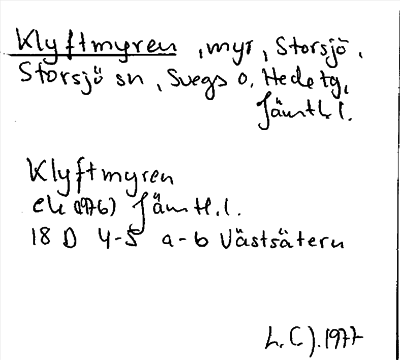 Klyftmyren, myr, Storsjö,
Storsjö sn, Svegs o. Hede tg,
Jämtl.l.
Klyftmyren
ek (1976) Jämtl.l.
18 D 4-5 a-b Västsätern
1977